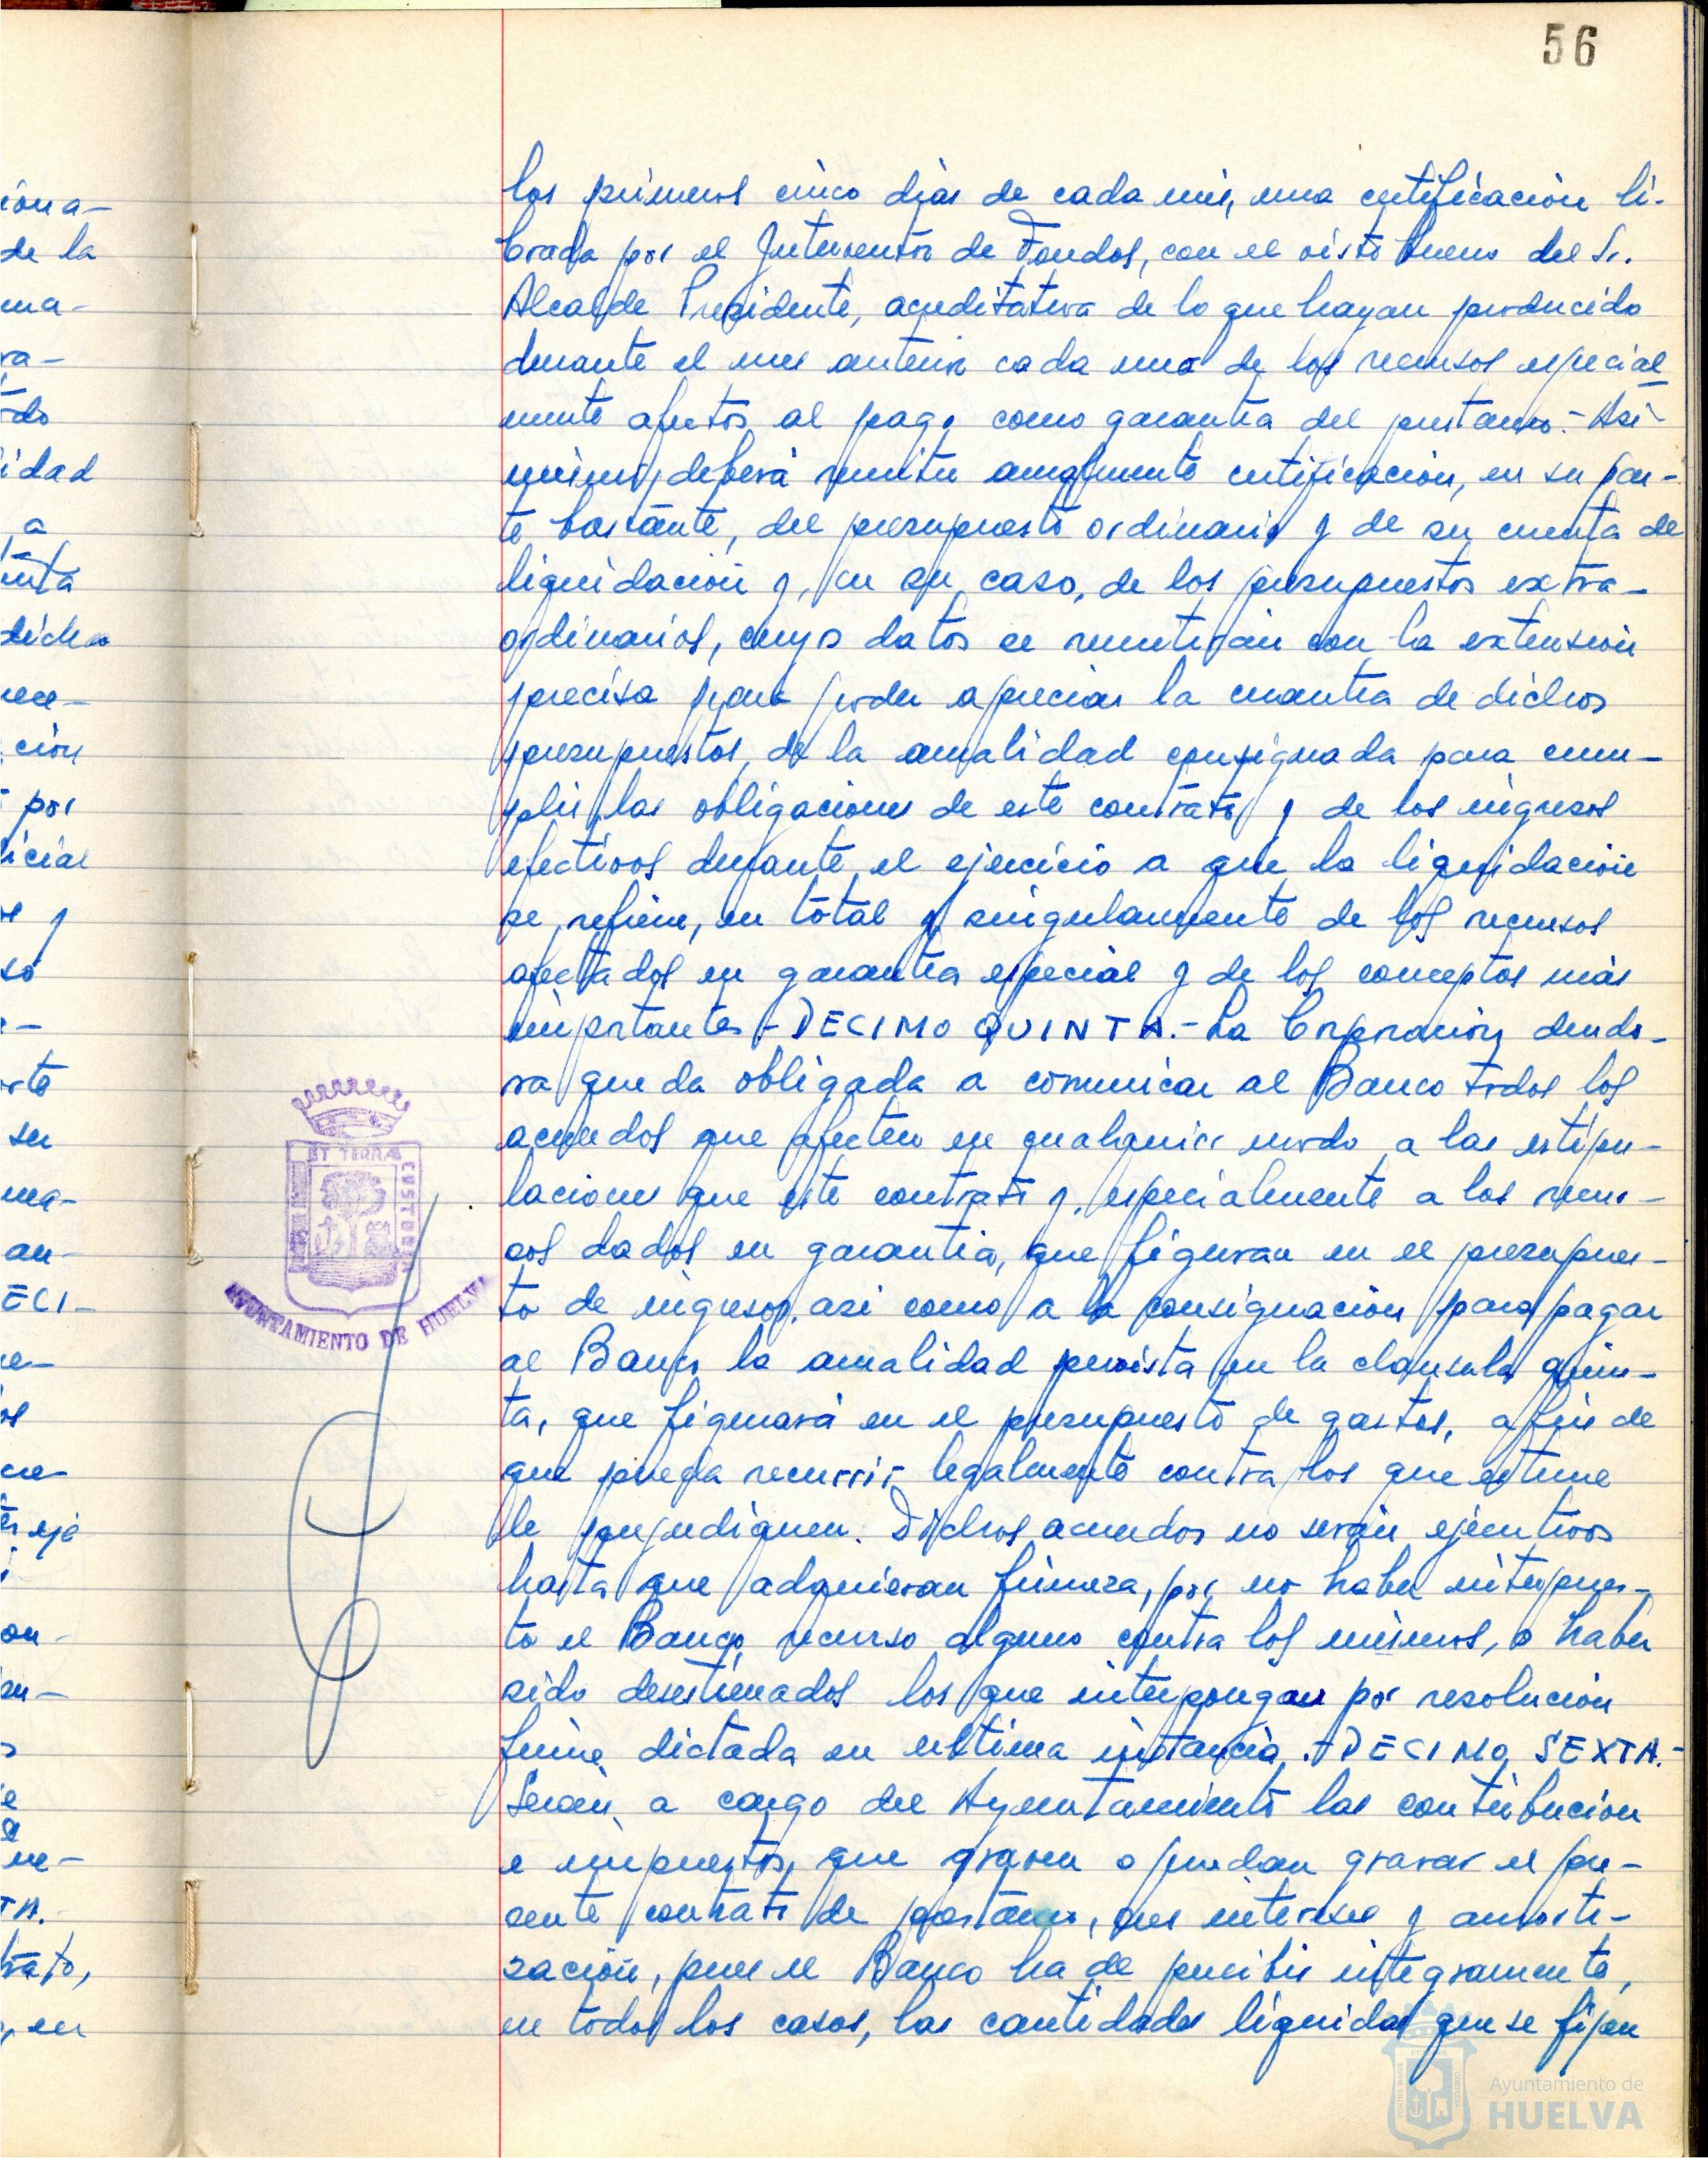 56
los primeros cinco dias de cada mes, una certificación li-
brada por el Interventor de Fondos, con el visto bueno del Sr.
Alcalde Presidente, acreditativa de lo que hayan producido
durante el mes anterior cada uno de los recursos especial
mente afectos al pago como garantia del prestamo.- Asi-
mismo, deberá remitir anualmente certificación, en su par-
te bastante, del presupuesto ordinario y de su cuenta de
liquidación y, en su caso, de los presupuestos extra-
ordinarios, cuyos datos se remitirán con la extensión
precisa para poder apreciar la cuantia de dichos
presupuestos, de la anualidad consignada para cum-
plir las obligaciones de este contrato y de los ingresos
efectivos durante el ejercicio a que la liquidación
se refiere, en total y singularmente de los recursos
afectados en garantia especial y de los conceptos más
importantes.- DECIMO QUINTA.- La Corporación deudo-
ra queda obligada a comunicar al Banco todos los
acuerdos que afecten en cualquier modo a las estipu-
laciones que este contrato y, especialmente a los recur-
sos dados en garantia, que figuran en el presupues-
to de ingresos, asi como a la consignación para pagar
al Banco la anualidad prevista en la clausula quin-
ta, que figurará en el presupuesto de gastos, a fin de
que pueda recurrir legalmente contra los que estime
le perjudiquen. Dichos acuerdos no serán ejecutivos
hasta que adquieran firmeza, por no haber interpues-
to el Banco recurso alguno contra los mismos, o haber
sido desestimados los que interpongan por resolución
firme dictada en ultima instancia.- DECIMO SEXTA.-
Serán a cargo del Ayuntamiento las contribucion
e impuestos, que graven o puedan gravar el pre-
sente contrato de prestamo, sus intereses y amorti-
zación, pues el Banco ha de percibir integramente,
en todos los casos, las cantidades liquidas que se fijan
iona-
de la
ma-
ra-
do
idad
a
nta
dicha
nece-
ción
por
icial
so
rte
su
ma-
an-
ECI-
on-
TA.
rato,
, en
ET TERRÆ CUSTODIA
AYUNTAMIENTO DE HUELVA
Ayuntamiento de
HUELVA